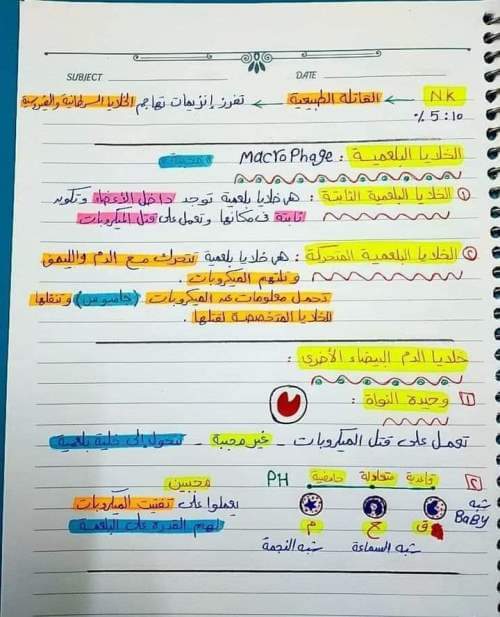 SUBJECT DATE
NK ← القاتلة الطبيعية ← تفرز إنزيمات تهاجم الخلايا السرطانية والفيروسية
5:10 %
الخلايا البلعمية : MacroPhage
① الخلايا البلعمية الثابتة : هى خلايا بلعمية توجد داخل الأعضاء وتكون
ثابتة فى مكانها وتعمل على قتل الميكروبات
② الخلايا البلعمية المتحركة : هى خلايا بلعمية تتحرك مع الدم والليمف
و تلتهم الميكروبات .
تحمل معلومات عن الميكروبات (جاسوس) وتنقلها
للخلايا المتخصصة لقتلها .
خلايا الدم البيضاء الأخرى :
1 وحيدة النواة :
تعمل على قتل الميكروبات - غير محببة - تتحول إلى خلية بلعمية
2 قاعدية متعادلة حامضية PH محببين
شبه BaBY يعملوا على تفتيت الميكروبات
ق ح م لهم القدرة على البلعمة
شبه السماعة شبه النجمة